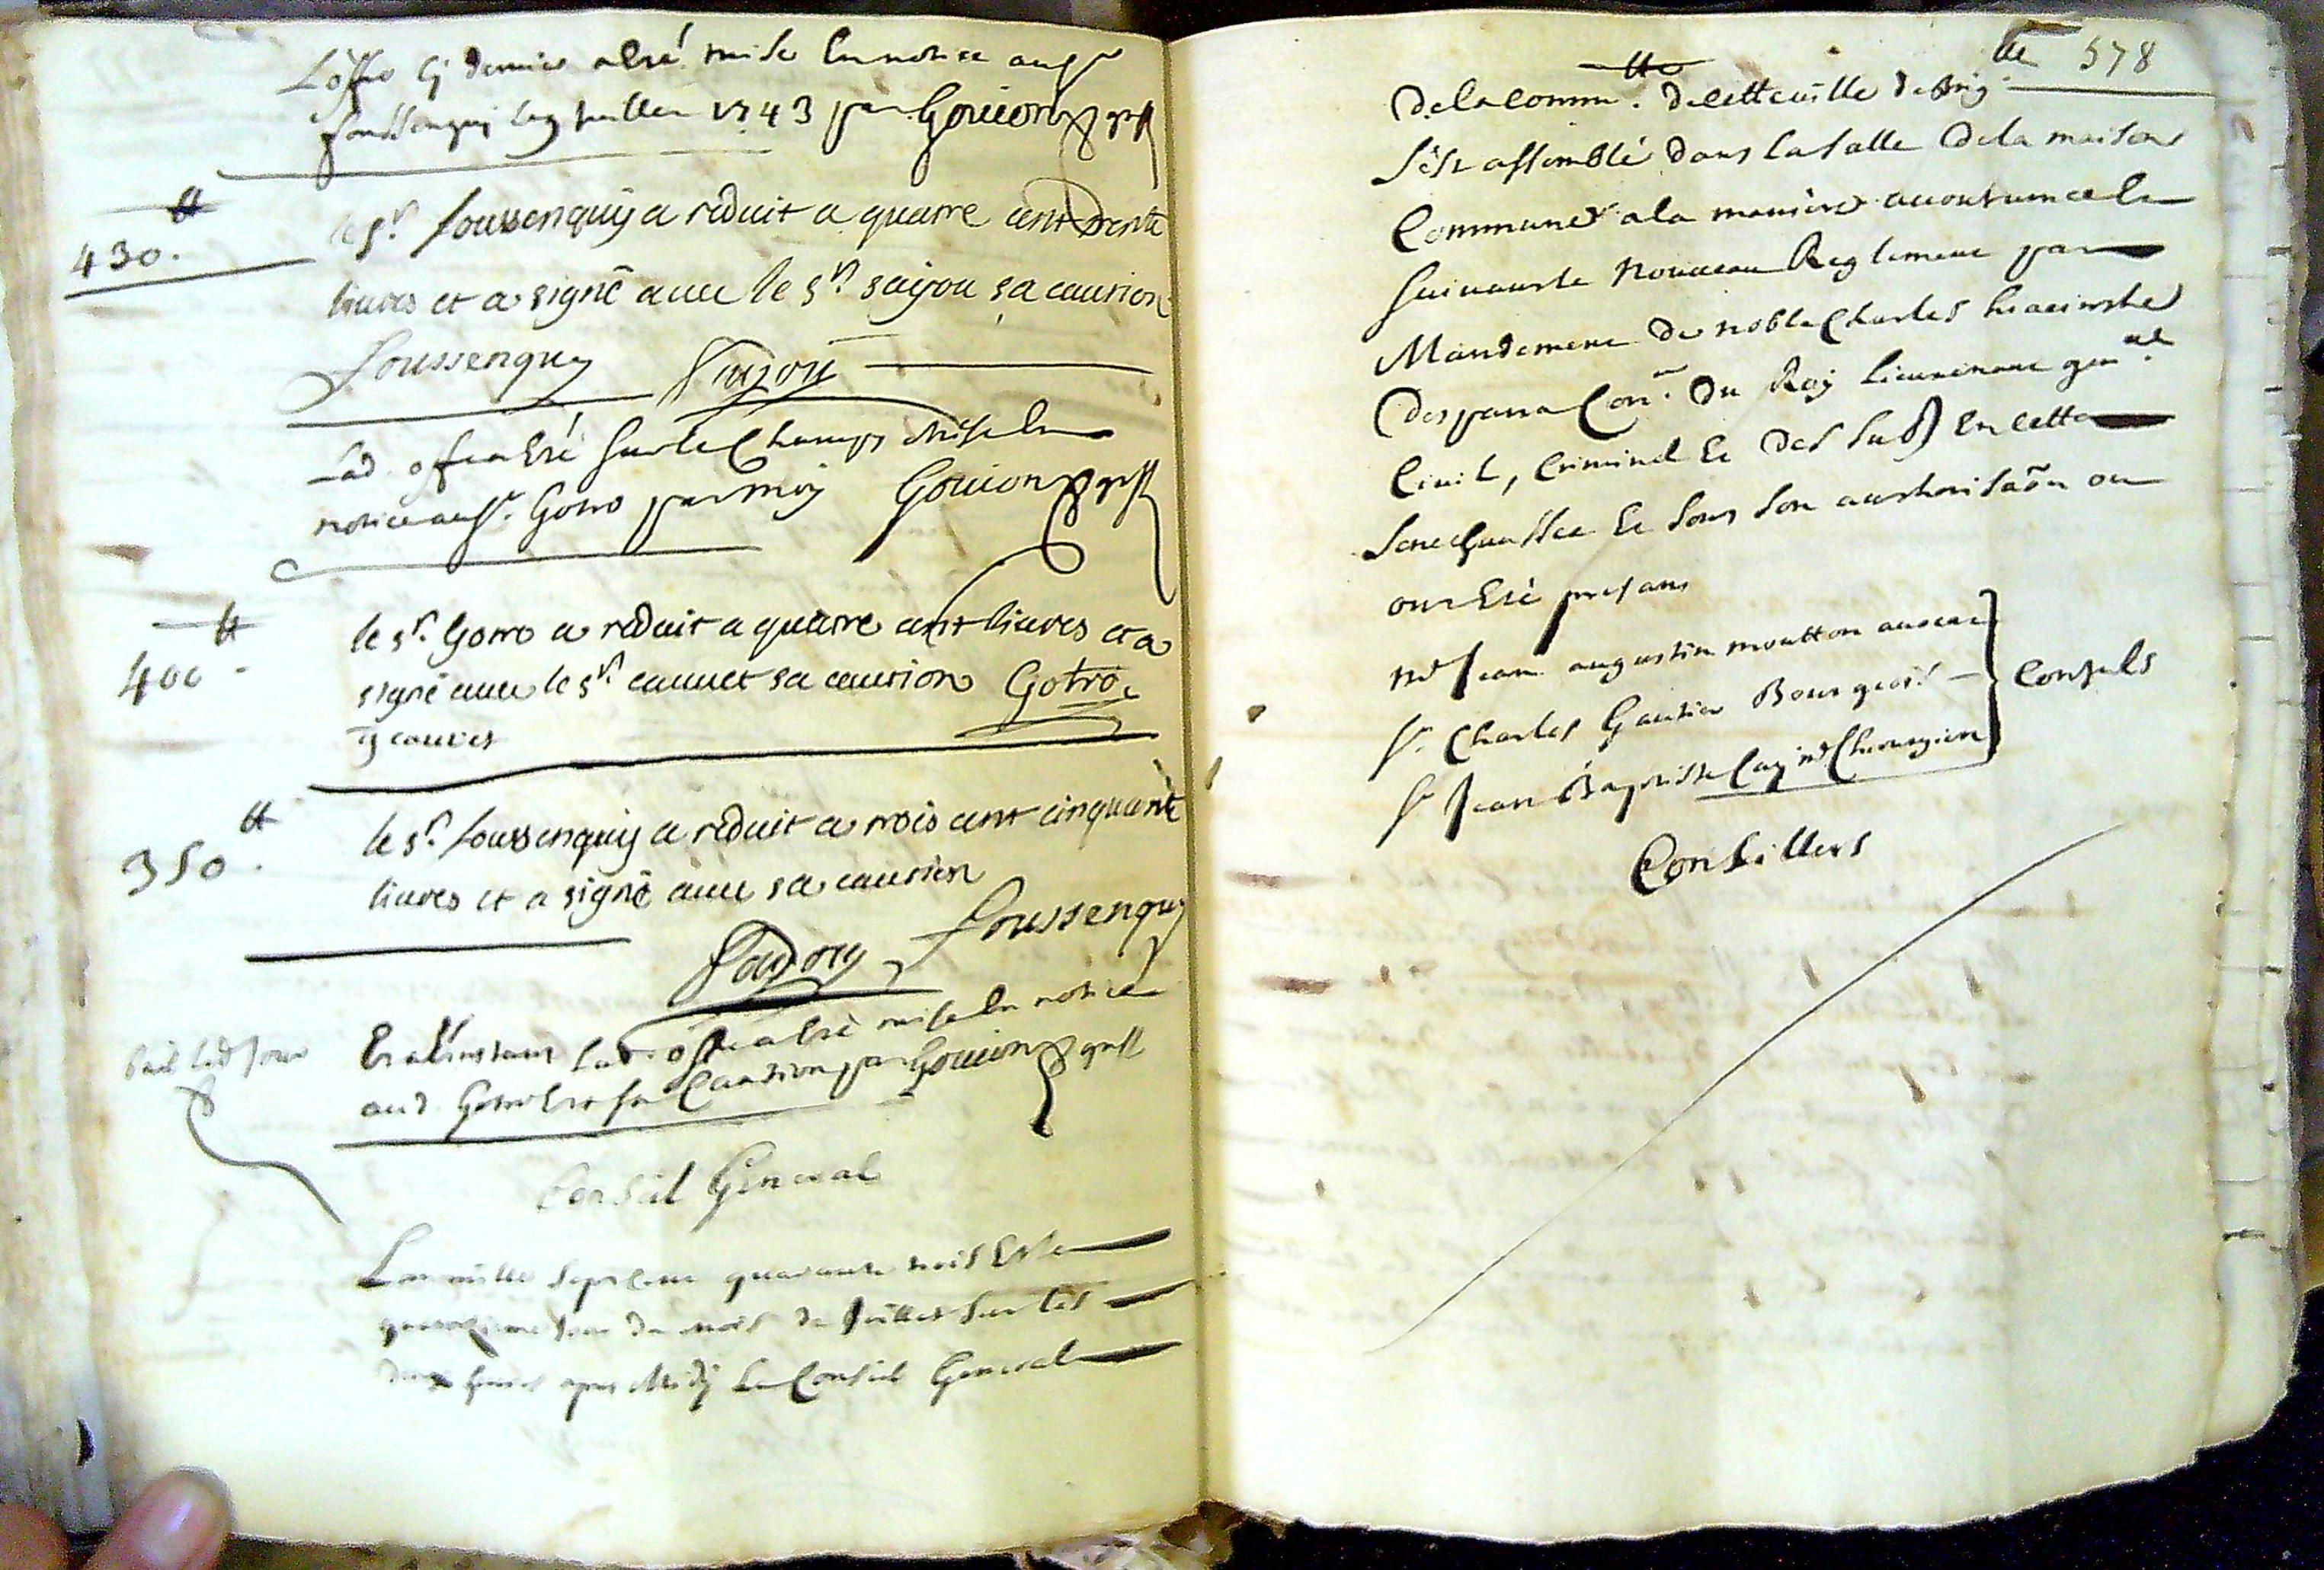 L'offre cy dernier a esté mise en notice au sr
Foussenquy le 9 juillet 1743 par Gouion greff
tt
430.
le sr. foussenquy a reduit a quatre cent trente
livres et a signé avec le sr. sajou sa caution
Foussenquy Sajou
Lad. offre a esté sur le Champ mise en
notice au sr. Gotro par moy Gouion greff
tt
400
le sr. Gotro a reduit a quatre cent livres et a
signé avec le sr. cauvet sa caution Gotro
cauvet
tt
350.
le sr. foussenquy a reduit a trois cent cinquante
livres et a signé avec sa caution
Sajou Foussenquy
bail led jour
Et a l'instant lad. offre a esté mise en notice
aud. Gotro et sa Caution par Gouion greff
Conseil General
L'an mille sept cent quarante trois et le
quatorzieme jour du mois de Juillet sur les
deux heures apres Midy Le Conseil General
578
de la comm. de cette ville de Brig.
s'est assemblé dans la salle de la maison
Commune a la maniere accoutumée en
suivant le nouveau Reglement par
Mandement de noble Charles hiacinthe
Despana Con. du Roy Lieutenant gen.al
Civil, Criminel et des sub en cette
Senechaussée et sous son authorisaõn ou
ont esté presans
Me Jean augustin moutton avocat
sr. Charles Gautier Bourgeois
sr Jean Baptiste Cay me Chirurgien
Consuls
Conseillers